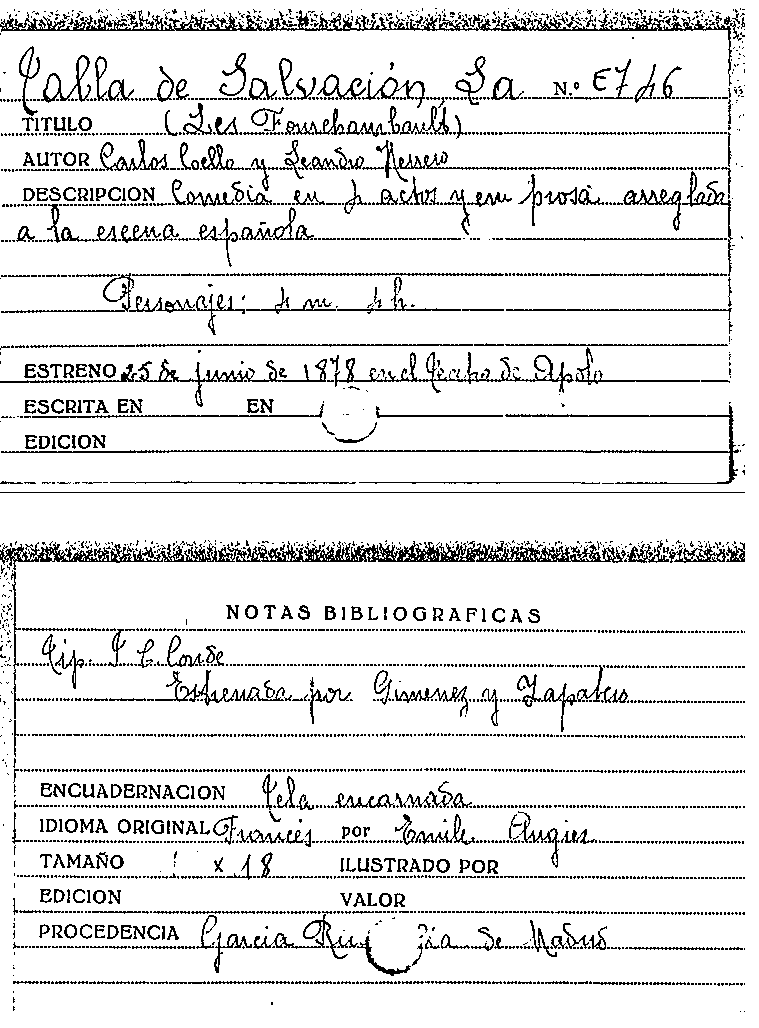 Tabla de Salvación, La N.º E746
TITULO (Les Fourchambault)
AUTOR Carlos Coello y Leandro Herrero
DESCRIPCION Comedia en 4 actos y en prosa arreglada
a la escena española
Personajes: 4 m. 4 h.
ESTRENO 25 de junio de 1878 en el Teatro de Apolo
ESCRITA EN EN
EDICION
NOTAS BIBLIOGRAFICAS
Tip. Conde
Estrenada por Gimenez y Zapatero
ENCUADERNACION Tela encarnada
IDIOMA ORIGINAL Francés por Emile Augier
TAMAÑO x 18 ILUSTRADO POR
EDICION VALOR
PROCEDENCIA Garcia de Madrid